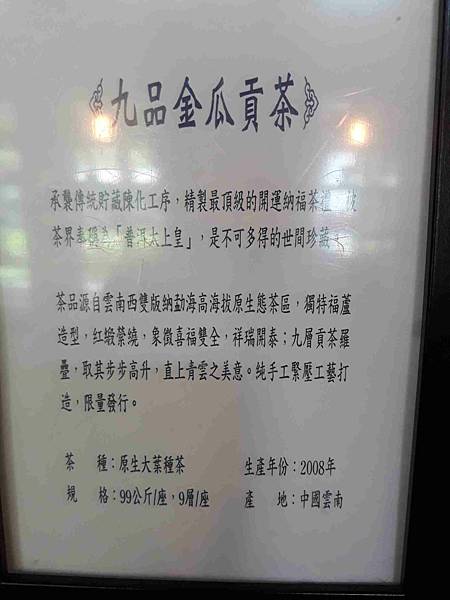 《九品金瓜貢茶》
承襲傳統貯藏陳化工序，精製最頂級的開運納福茶禮
茶界奉 「普洱太上皇」，是不可多得的世間珍藏
茶品源自雲南西雙版納勐海高海拔原生態茶區，獨特福蘆
造型，紅緞縈繞，象徵喜福雙全，祥瑞開泰；九層貢茶羅
疊，取其步步高升，直上青雲之美意。純手工緊壓工藝打
造，限量發行。
茶　種：原生大葉種茶　生產年份：2008年
規　格：99公斤/座，9層/座　產　地：中國雲南